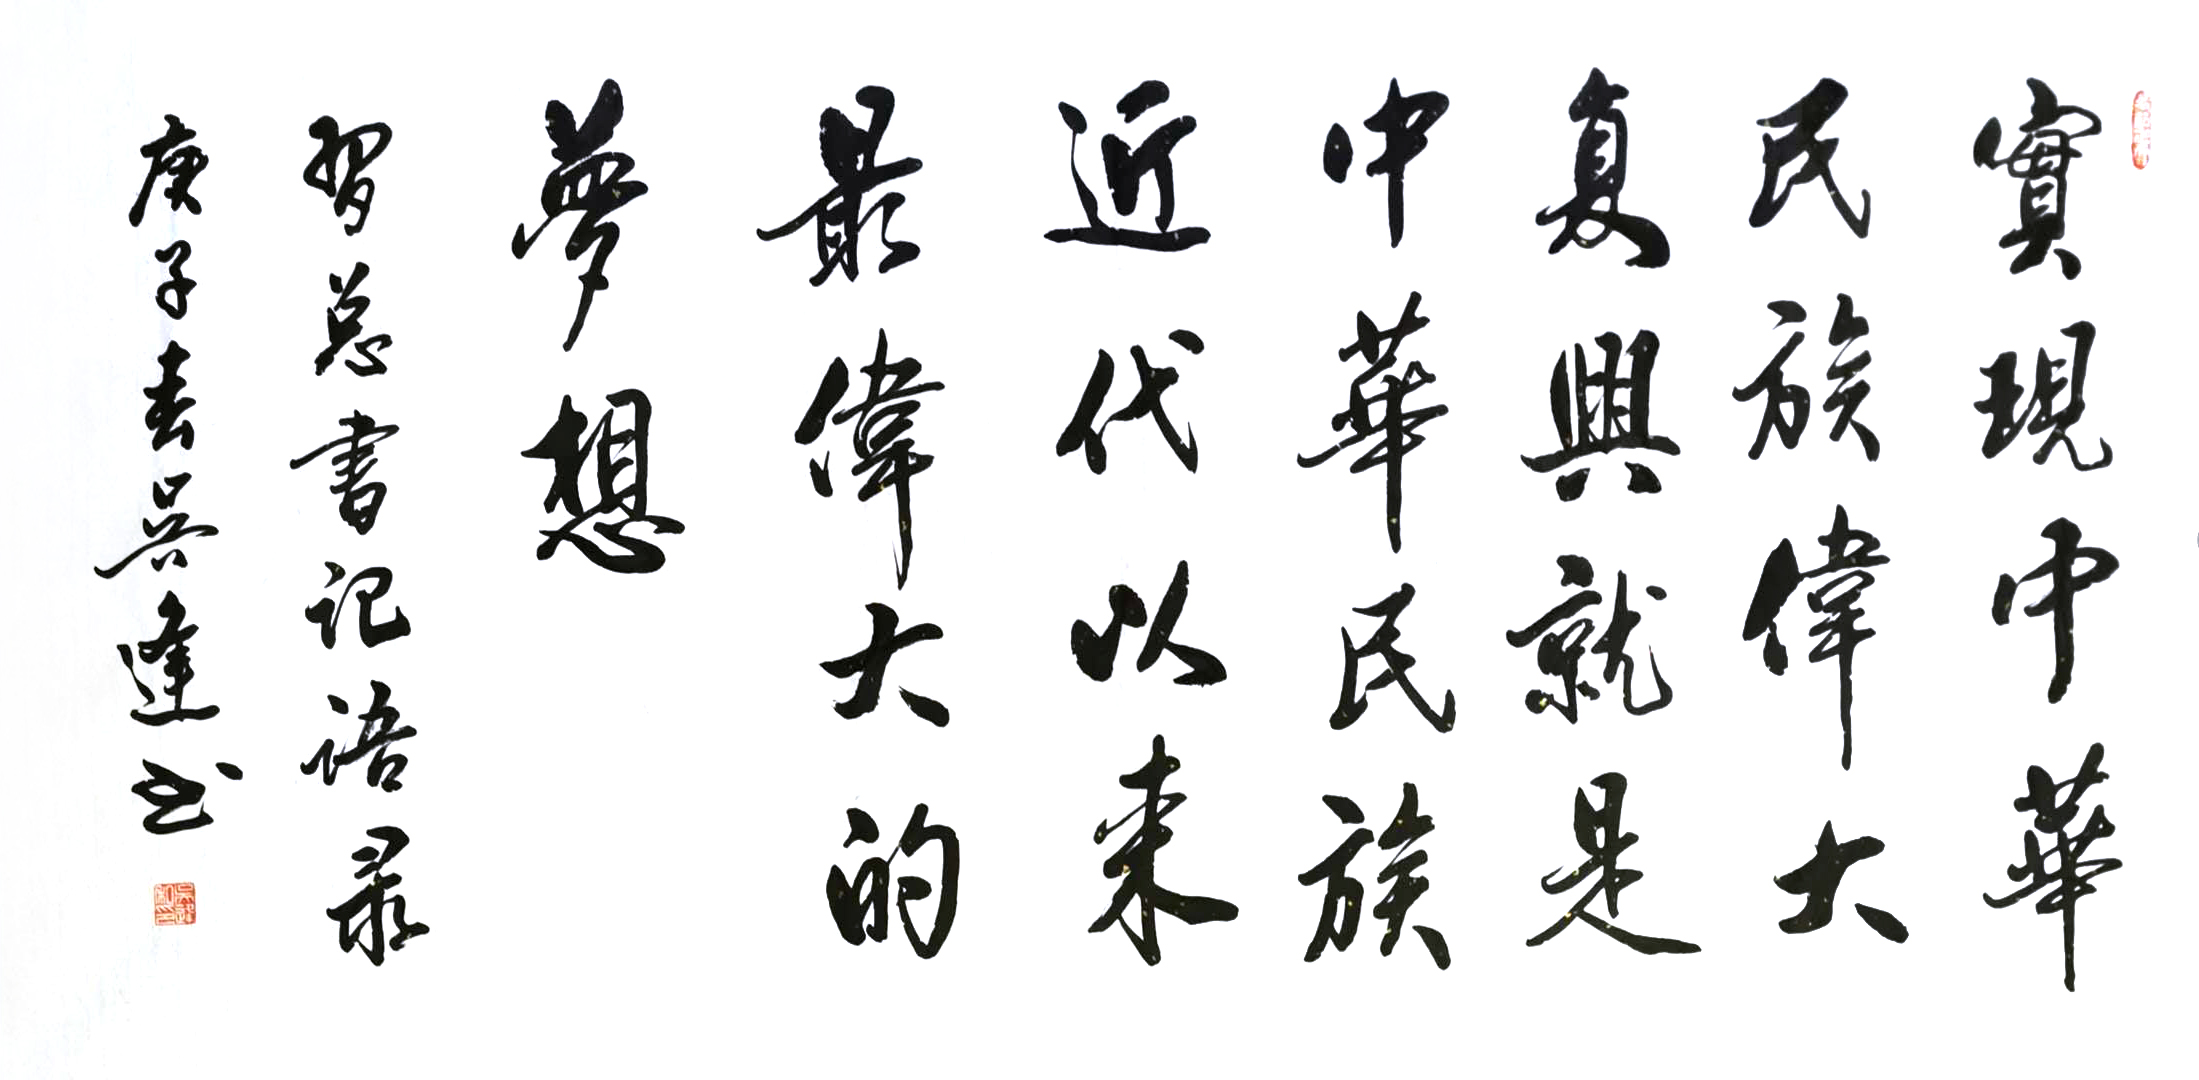 實現中華
民族偉大
复興就是
中華民族
近代以来
最偉大的
夢想
習总書记语录
庚子春吴逢书